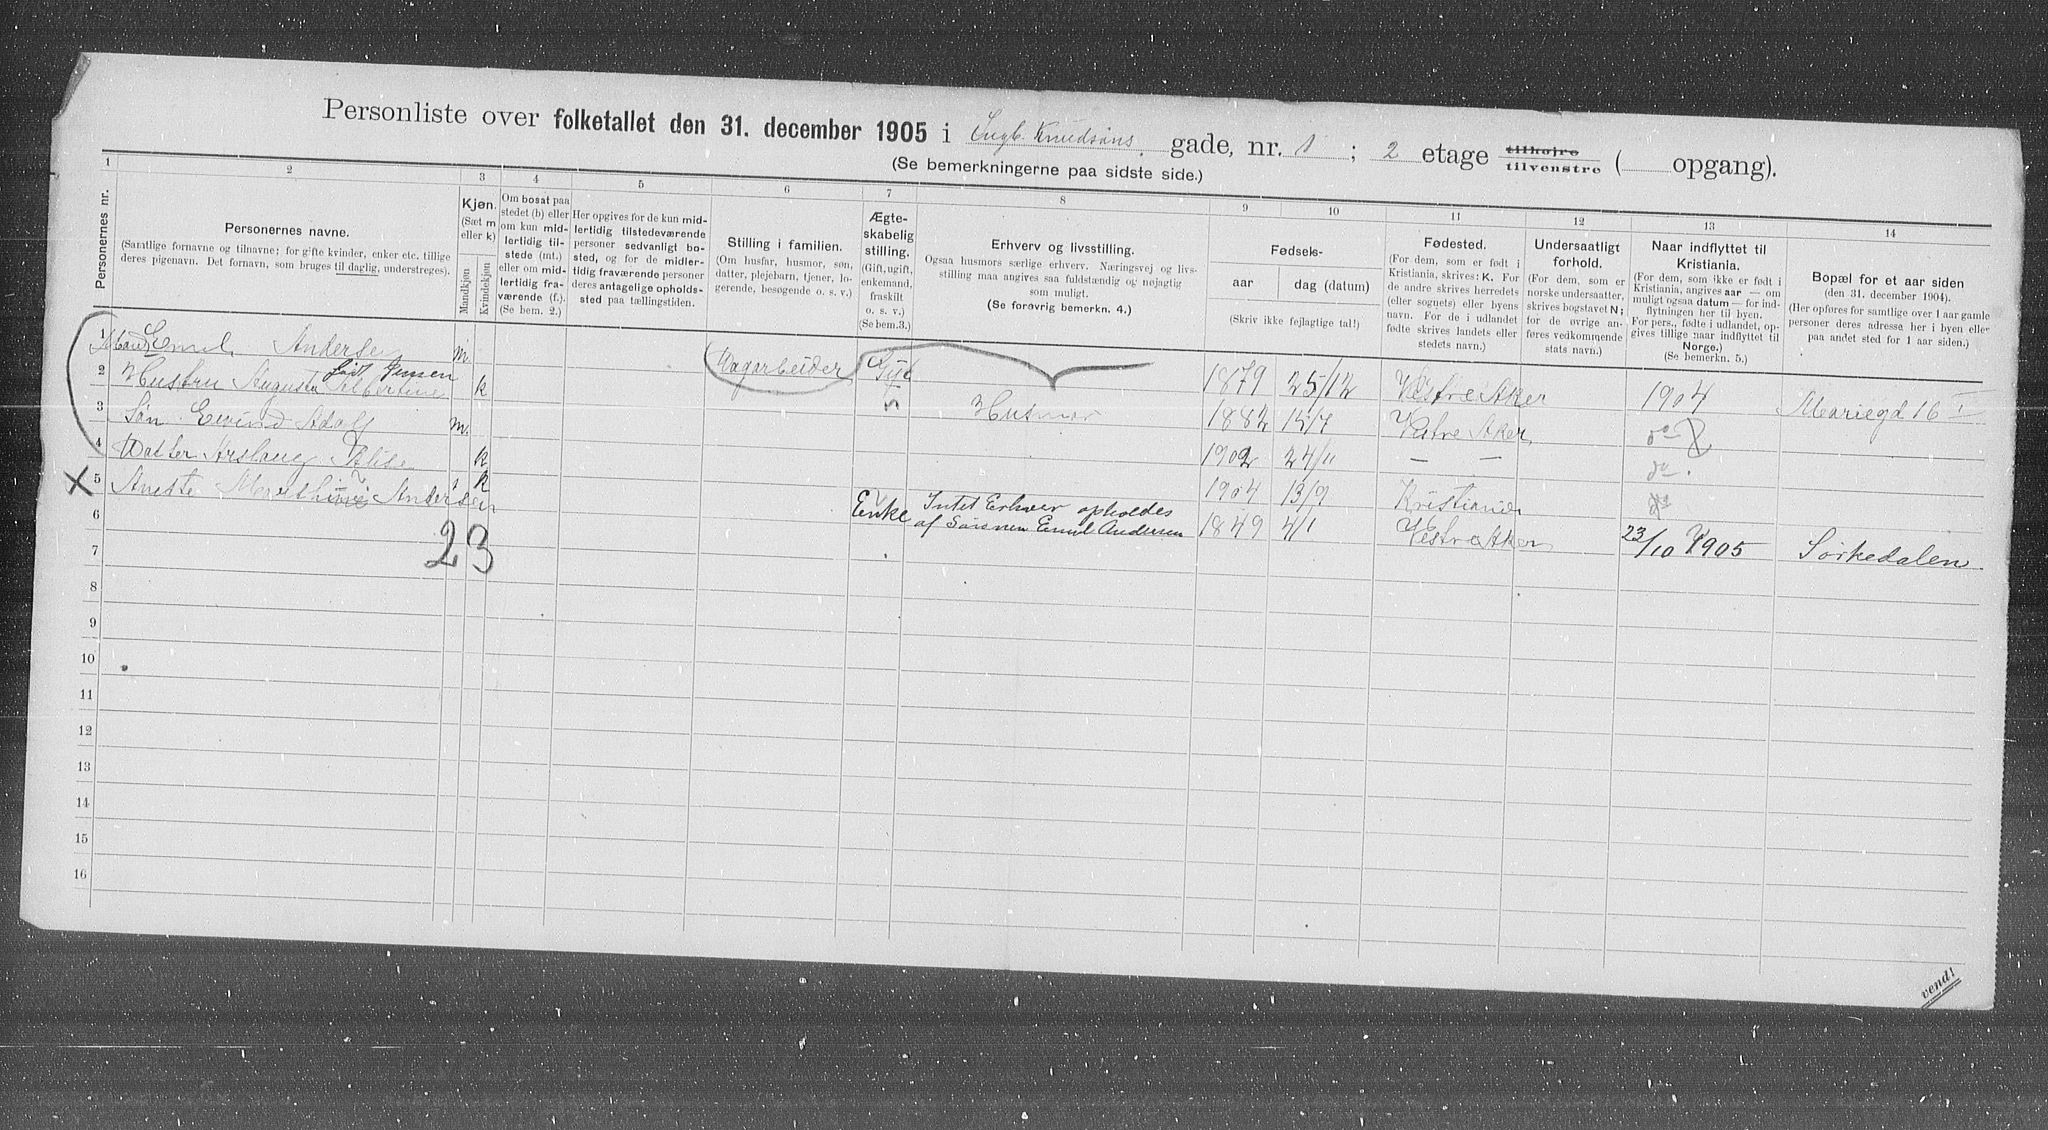 Personliste over folketallet den 31. december 1905 i Ingb. Knudsøns gade, nr. 1 ; 2 etage tilhøjre tilvenstre ( opgang).
(Se bemerkningerne paa sidste side.)
1 2 3 4 5 6 7 8 9 10 11 12 13 14
Personernes nr.
Personernes navne.
(Samtlige fornavne og tilnavne; for gifte kvinder, enker etc. tillige
deres pigenavn. Det fornavn, som bruges til daglig, understreges).
Kjøn.
(Sæt m
eller k)
Mandkjøn
Kvindekjøn
Om bosat paa
stedet (b) eller
om kun mid-
lertidig til-
stede (mt.)
eller om mid-
lertidig fra-
værende (f.).
(Se bem. 2.)
Her opgives for de kun mid-
lertidig tilstedeværende
personer sedvanligt bo-
sted, og for de midler-
tidig fraværende personer
deres antagelige opholds-
sted paa tællingstiden.
Stilling i familien.
(Om husfar, husmor, søn,
datter, plejebarn, tjener, lo-
gerende, besøgende o. s. v.)
Ægte-
skabelig
stilling.
(Gift, ugift,
enkemand,
fraskilt
o. s. v.)
(Se bem.3.)
Erhverv og livsstilling.
Ogsaa husmors særlige erhverv. Næringsvej og livs-
stilling maa angives saa fuldstændig og nøjagtig
som muligt.
(Se forøvrig bemerkn. 4.)
Fødsels-
aar
dag (datum)
(Skriv ikke fejlagtige tal!)
Fødested.
(For dem, som er født i
Kristiania, skrives: K. For
de andre skrives herredets
(eller sognets) eller byens
navn. For de i udlandet
fødte skrives landets eller
stedets navn.)
Undersaatligt
forhold.
(For dem, som er
norske undersaatter,
skrives bogstavet N;
for de øvrige an-
føres vedkommende
stats navn.)
Naar indflyttet til
Kristiania.
(For dem, som ikke er født i
Kristiania, angives aar — om
muligt ogsaa datum — for ind-
flytningen her til byen.
For pers., fødte i udlandet, op-
gives tillige naar indflyttet til
Norge.)
(Se bemerkn. 5.)
Bopæl for et aar siden
(den 31. december 1904).
(Her opføres for samtlige over 1 aar gamle
personer deres adresse her i byen eller
paa andet sted for 1 aar siden.)
1 Emil Andersen m Vagarbeider Gift 1879 25/12 Vestre Aker 1904 Mariegd 16 I
født Jensen
2 Hustru Augusta Albertine k Husmor 1882 14/7 Vestre Aker do
3 Søn Eivind Adolf m. 1902 24/11 — — do.
4 Datter Aslaug Alise k 1904 13/9 Kristiania
5 Aneste Andersen k Enke Intet Erhver opholdes
af Sønnen Emil Andersen 1849 4/1 Vestre Aker 23/10 1905 Sørkedalen
6
23
7
8
9
10
11
12
13
14
15
16
vend!